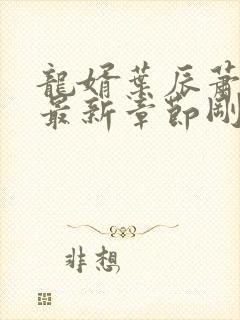 龍婿葉辰蕭
最新章節剛
非想